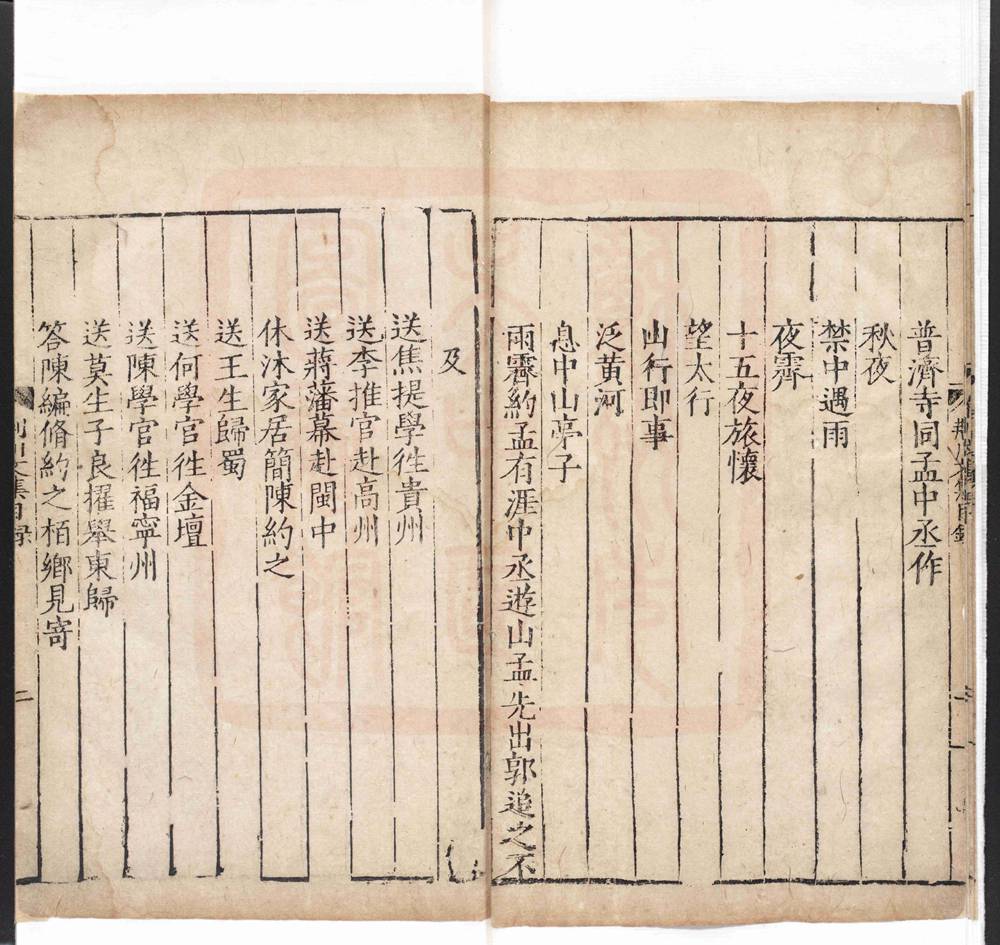 普濟寺同孟中丞作
秋夜
禁中遇雨
夜霽
十五夜旅懷
望太行
山行即事
泛黃河
息中山亭子
雨霽約孟有涯中丞遊山孟先出郭追之不
及
送焦提學徃貴州
送李推官赴高州
送蔣藩幕赴閩中
休沐家居簡陳約之
送王生歸蜀
送何學官徃金壇
送陳學官徃福寧州
送莫生子良擢舉東歸
答陳編脩約之栢鄉見寄
荆川文集目录
二